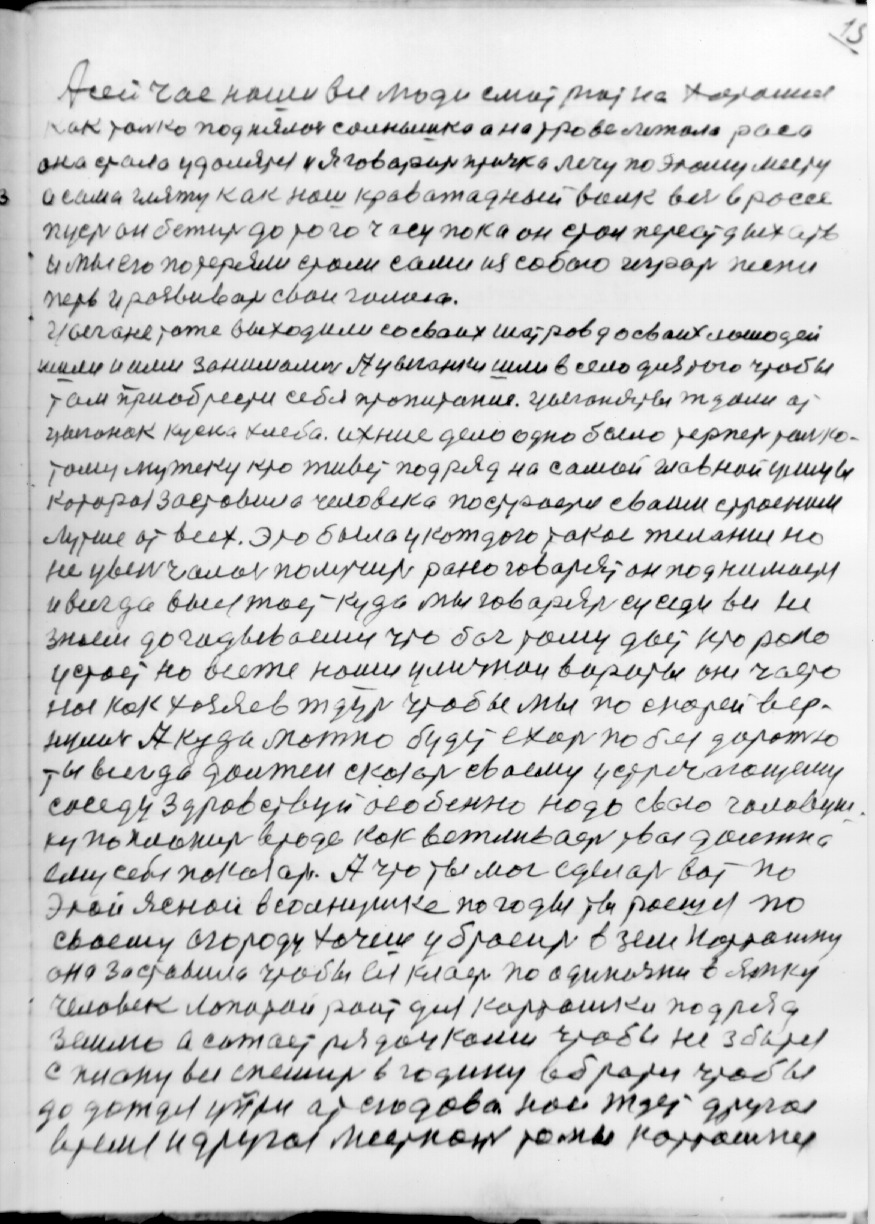 15
А сей час наши вси люди смотрят на хорошие
как толко поднялос солнышка а на трове лежала раса
она стала удалятся и я говорил птичка лечу по этому месту
а сама гляжу как наш кравожадный волк вся в россе
пуст он бежит до того часу пока он стал перест дыхать
и мы его потеряли стали сами из собою играт песни
перь и розвиват свои голоса.
Цыгане тоже выходили со своих шатров до своих лошадей
шли и ими занималис А цыганки шли в село для того чтобы
там приобрести себя пропитание. цыганяты ждали от
цыганок куска хлеба. ихние дело одно было терпет толко
тому мужеку кто живет подряд на самой главной улицы
котора заставила человека построети сваии строении
лутше от всех. Это была у кождого такое желание но
не увенчалос получит рано говарят он поднимается
и всегда выезжает куда мы говарят суседи вси не
знаем догадываемся что бог тому дает кто рано
устает но всеже наши уличтаи вароты они часто
нас как хозяев ждут чтобы мы по скорей вер-
нулис А куда можно будет ехат по бел дорожю
ты всегда должен сказат своему устречающему
соседу Здравствуй особенно надо сваю головуш-
ку поклонит вроде как вежливаст твоя должна
ему себя показат. А что ты мог сделат вот по
этой ясной всолнушке погоды ты роешся по
своему огороду хочеш убросит в зем Картошку
она заставила чтобы ея класт по одиначки в ямку
человек лопатой роит для картошки подряд
землю а сажает рядочками чтобы не збится
с пиану вси спешит в годину вбрати чтобы
до дождя уйти от сюдова нас ждет другоя
время и другоя местност томы картошки